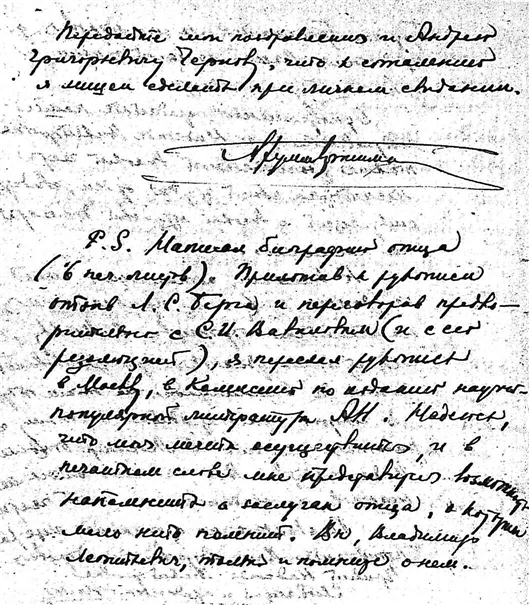 Передайте мои поздравления и Андрею
Григорьевичу Чернов, что к сожалению
я лишен сделать при личном свидании.
P.S. Написал биографию отца
(6 печ. листов). Приложив к рукописи
отзыв Л. С. Берга и переговорив предва-
рительно с С. И. Вавиловым (и с его
резолюцией), я переслал рукопись
в Москву, в Комиссию по изданию научно-
популярной литературы АН. Надеюсь,
что моя мечта осуществится, и в
печатном слове мне представится возможность
напомнить о заслугах отца, о котором
мало кто помнит. Вы, Владимир
Леонтьевич, только и помните о нем.